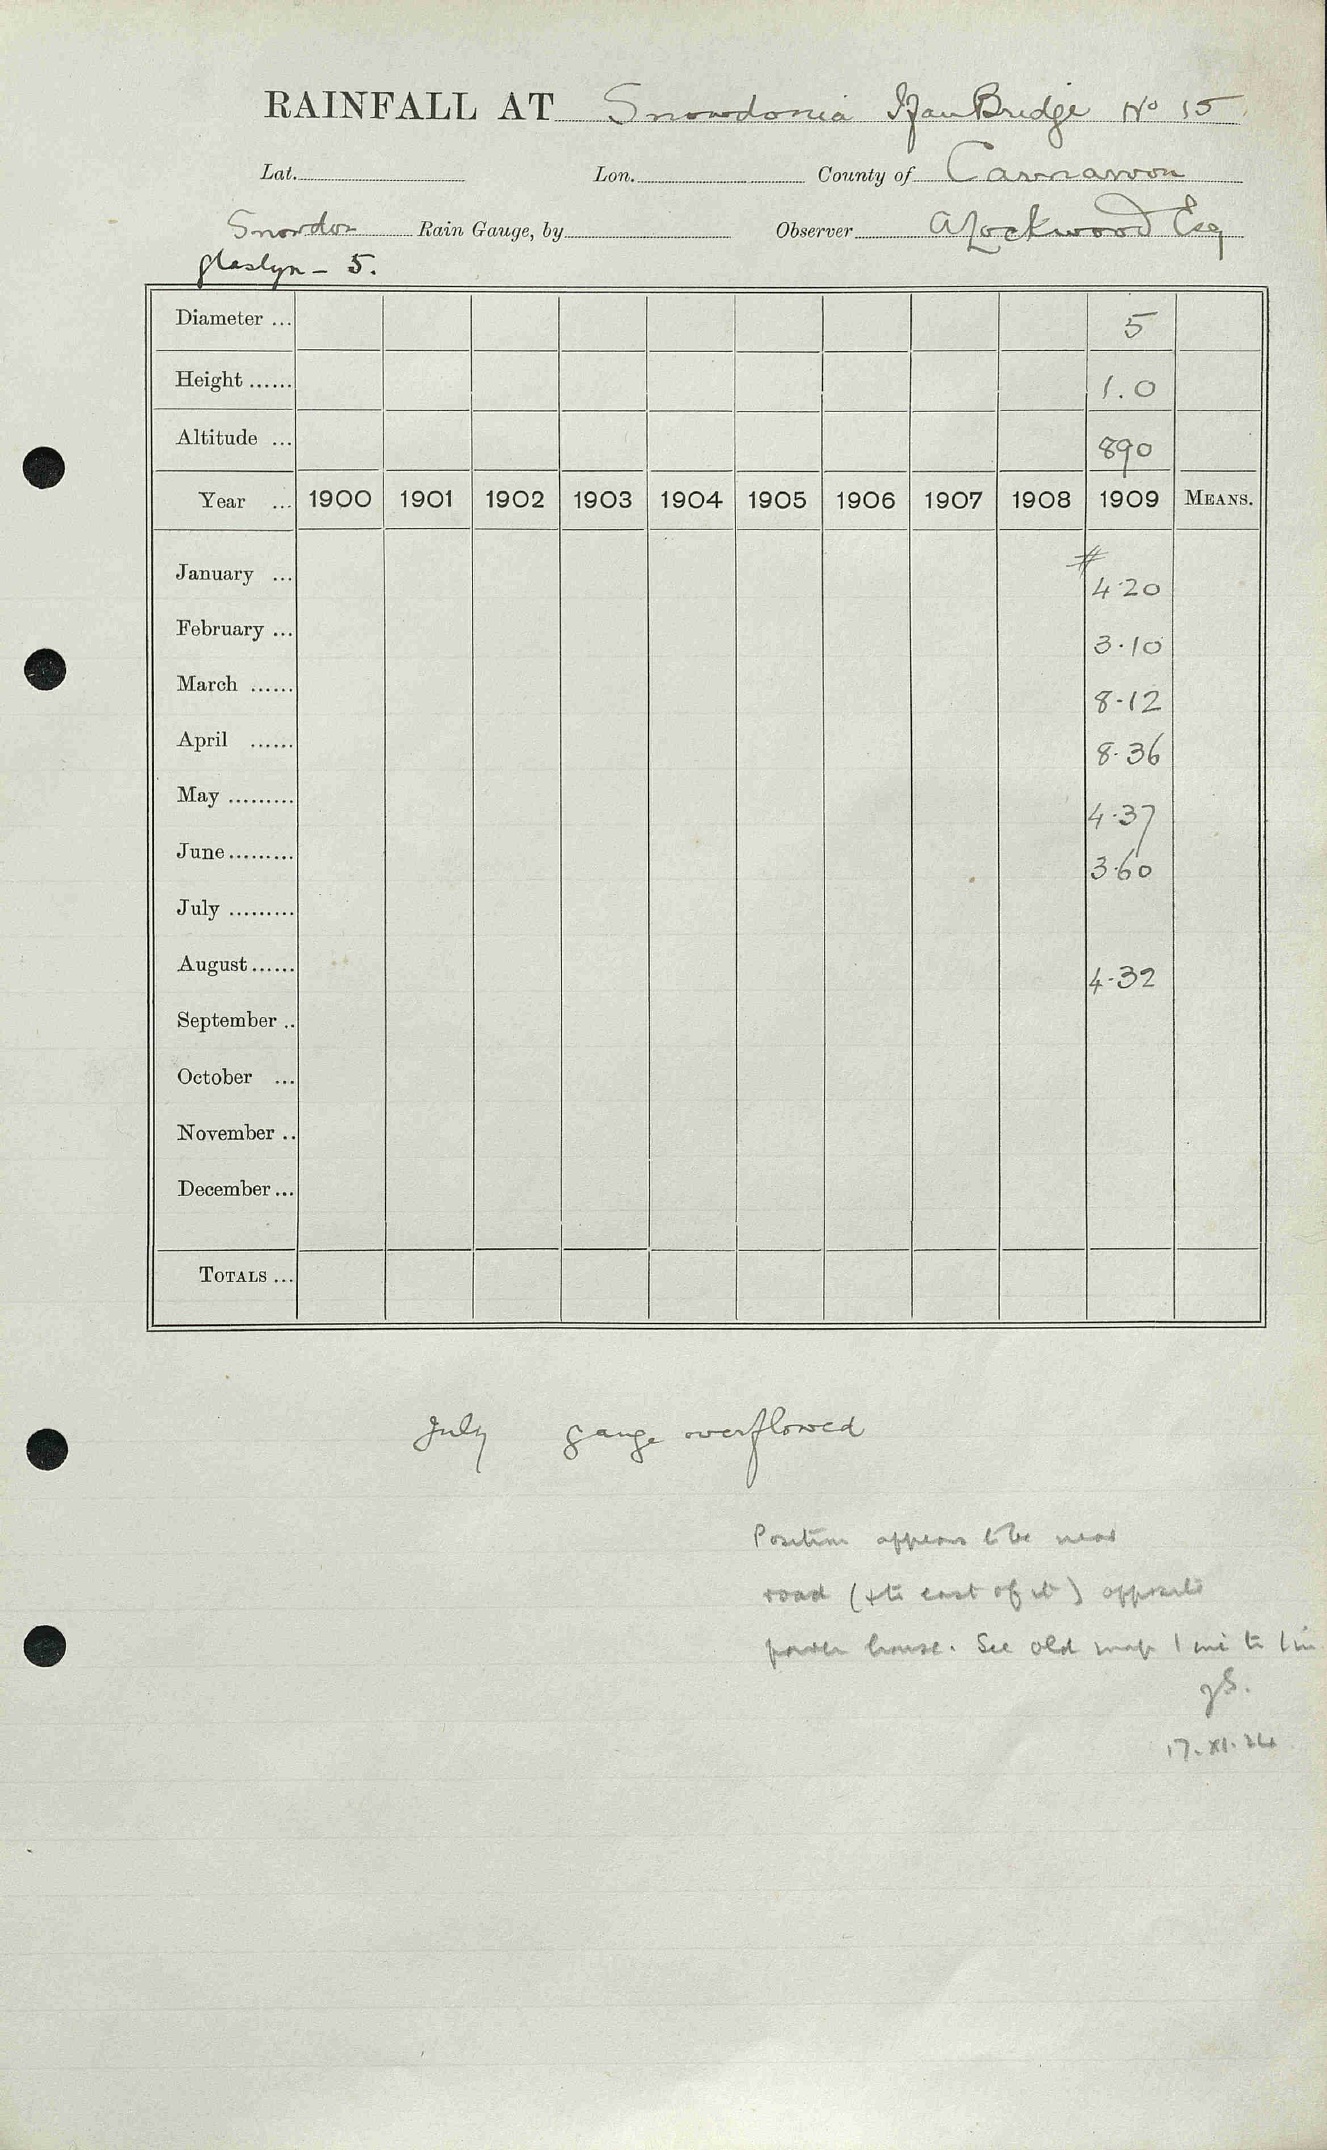 RAINFALL AT Snowdonia Ifan Bridge No 15
Lat. Lon. County of Carnarvon
Snowdon Rain Gauge, by Observer A Lockwood Esq
glaslyn - 5.
Diameter ... 5
Height ...... 1.0
Altitude ... 890
Year ... 1900 1901 1902 1903 1904 1905 1906 1907 1908 1909 MEANS.
#
January ... 4.20
February ... 3.10
March ...... 8.12
April ...... 8.36
May ......... 4.37
June ......... 3.60
July .........
August ...... 4.32
September ..
October ...
November ..
December ...
TOTALS ...
July gauge overflowed
Position appears to be near
road (& to east of it) opposite
power house. See old map 1 mi to 1 in
JS.
17.XI.24